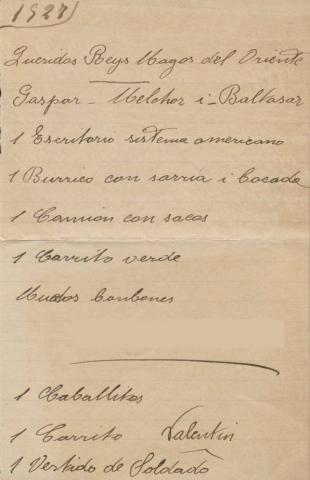 1927
Queridos Reys Magos del Oriente
Gaspar - Melchor i - Baltasar
1 Escritorio sistema americano
1 Burrico con sarria i Cocada
1 Camion con sacos
1 Carrito verde
Muchos bonbones
1 Caballitos
1 Carrito Valentin
1 Vestido de Soldado